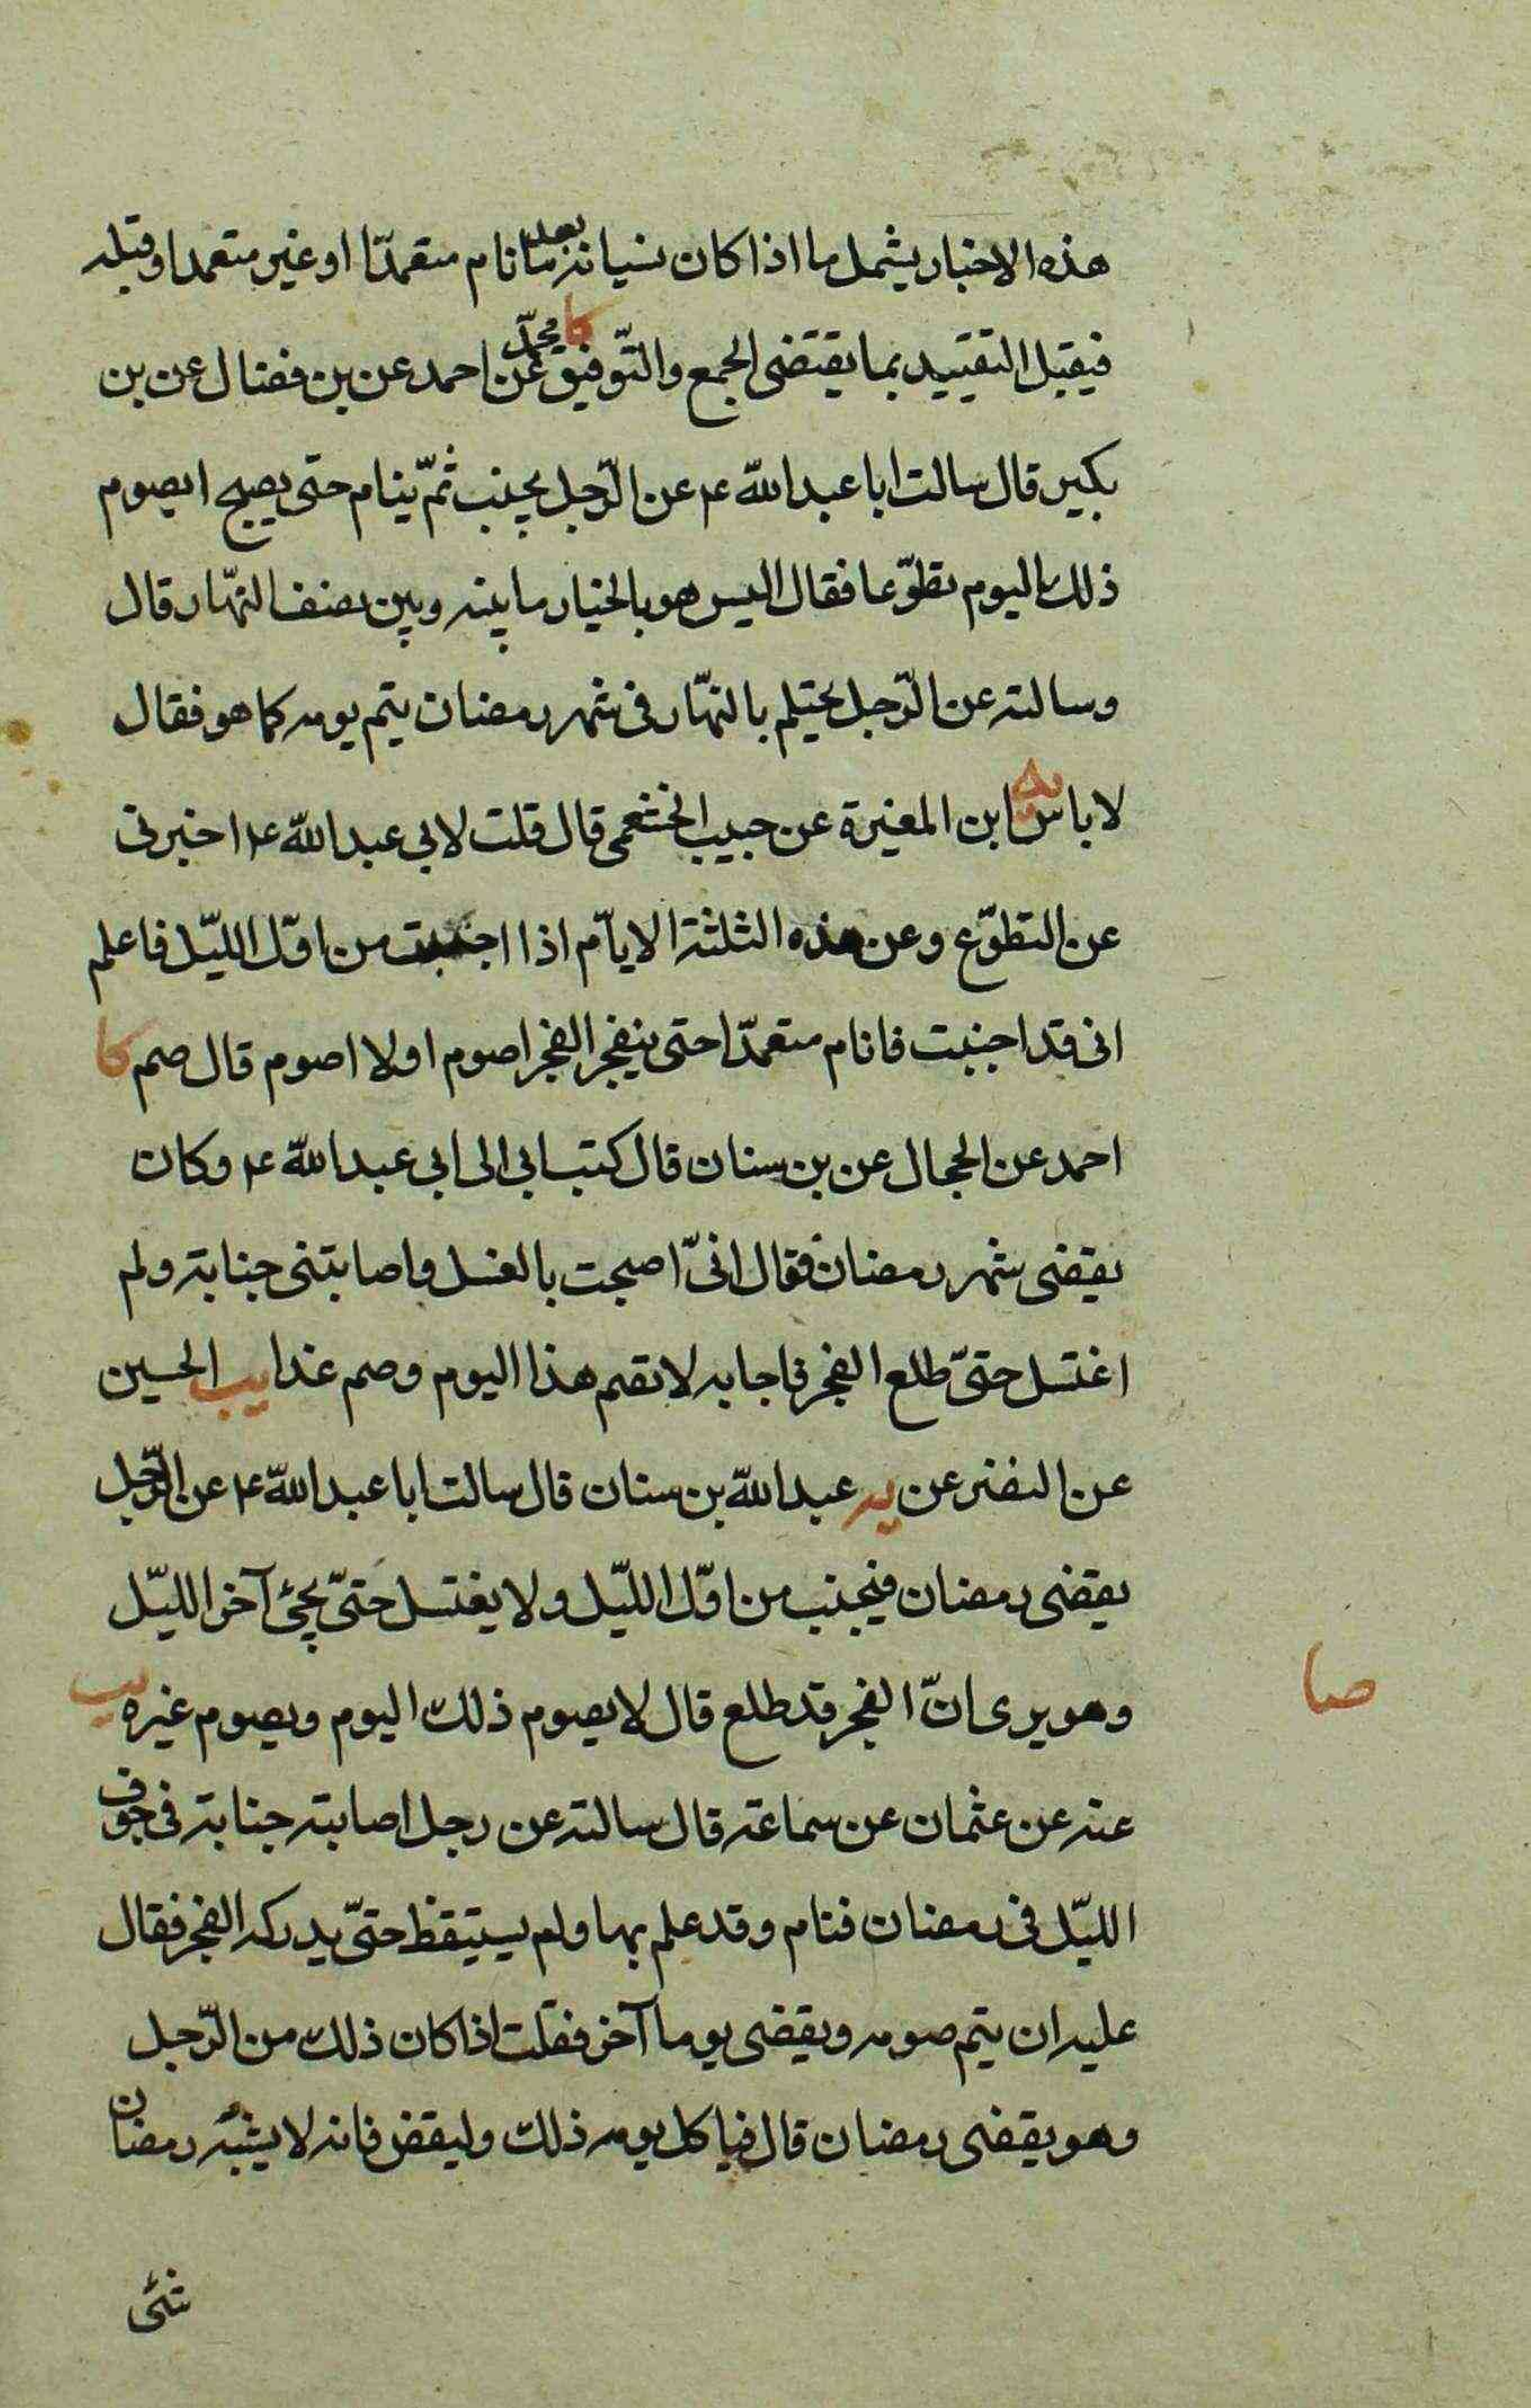 هذه الاخبار يشمل ما اذا كان نسيانه بعد ما نام متعمدّا او غير متعمدا وقبله
فيقبل التقييد بما يقتضى الجمع والتّوفيق كا محمّد عن احمد عن بن فضال عن بن
بكير قال سالت ابا عبد اللّه ع عن الرّجل يجنب ثمّ ينام حتى يصبح ايصوم
ذلك اليوم تطوّعا فقال اليس هو بالخيار ما بينه وبين نصف النّهار قال
وسالته عن الرّجل يحتلم بالنهّار فى شهر رمضان يتم يومه كما هو فقال
لا باس يه ابن المغيرة عن حبيب الخثعمى قال قلت لابى عبد اللّه ع اخبرنى
عن التطوّع وعن هذه الثلثة الايّام اذا اجنبت من اوّل الليّل فاعلم
انى قد اجنبت فانام متعمدّا حتى ينفجر الفجر اصوم او لا اصوم قال صم كا
احمد عن الحجال عن بن سنان قال كتب ابى الى ابى عبد اللّه ع وكان
يقضى شهر رمضان فقال انىّ اصبحت بالغسل واصابتنى جنابة ولم
اغتسل حتىّ طلع الفجر فاجابه لا تصم هذا اليوم وصم غدا يب الحسين
عن النضر عن يه عبد اللّه بن سنان قال سالت ابا عبد اللّه ع عن الرّجل
يقضى رمضان فيجنب من اوّل الليّل ولا يغتسل حتىّ يجئ آخر الليّل
صا
وهو يرى انّ الفجر قد طلع قال لا يصوم ذلك اليوم ويصوم غيره يب
عنه عن عثمان عن سماعة قال سالته عن رجل اصابته جنابة فى جوف
الليّل فى رمضان فنام وقد علم بها ولم يستيقظ حتىّ يدركه الفجر فقال
عليه ان يتم صومه ويقضى يوما آخر فقلت اذا كان ذلك من الرّجل
وهو يقضى رمضان قال فياكل يومه ذلك وليقض فانه لا يشبه رمضان
شئ